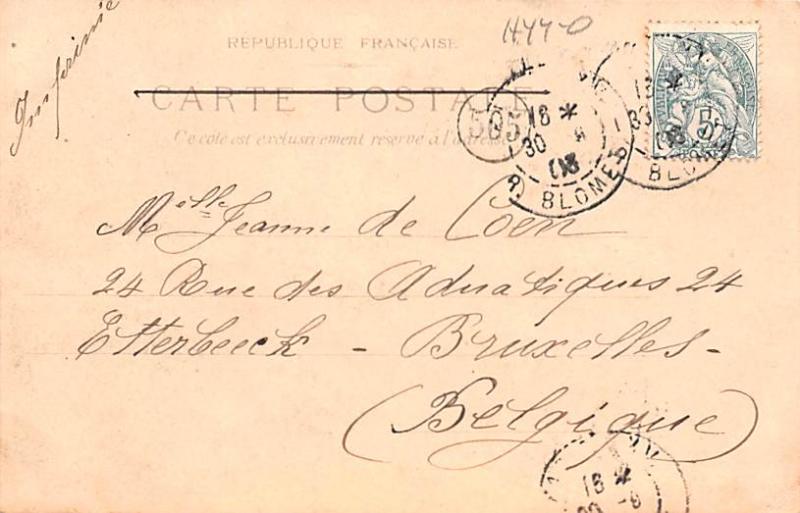 Imprimé
1440
REPUBLIQUE FRANÇAISE
CARTE POSTALE
Ce coté est exclusivement réservé à l'adresse
505
18 *
30
R. BLOMET
18 *
30
BLOM
5c
Melle Jeanne de Coen
24 Rue des Aduatiques 24
Etterbeeck - Bruxelles -
(Belgique)
18 *